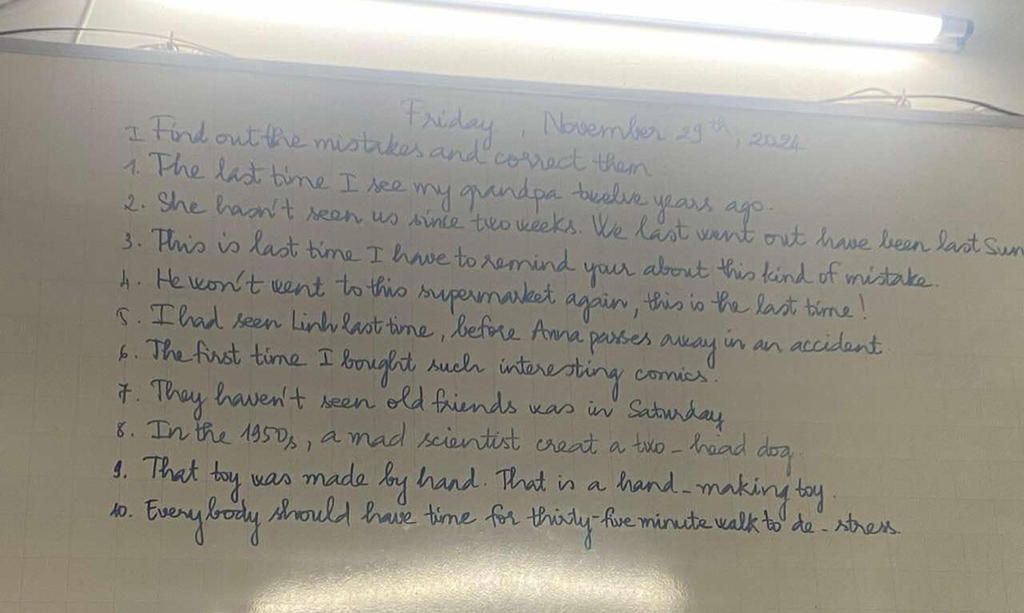 Friday, November 29th, 2024
I Find out the mistakes and correct them
1. The last time I see my grandpa twelve years ago.
2. She hasn't seen us since two weeks. We last went out have been last Sun
3. This is last time I have to remind your about this kind of mistake.
4. He won't went to this supermarket again, this is the last time!
5. I had seen Linh last time, before Anna passes away in an accident
6. The first time I bought such interesting comics.
7. They haven't seen old friends was in Saturday
8. In the 1950s, a mad scientist creat a two-head dog.
9. That toy was made by hand. That is a hand-making toy.
10. Everybody should have time for thirty-five minute walk to de-stress.